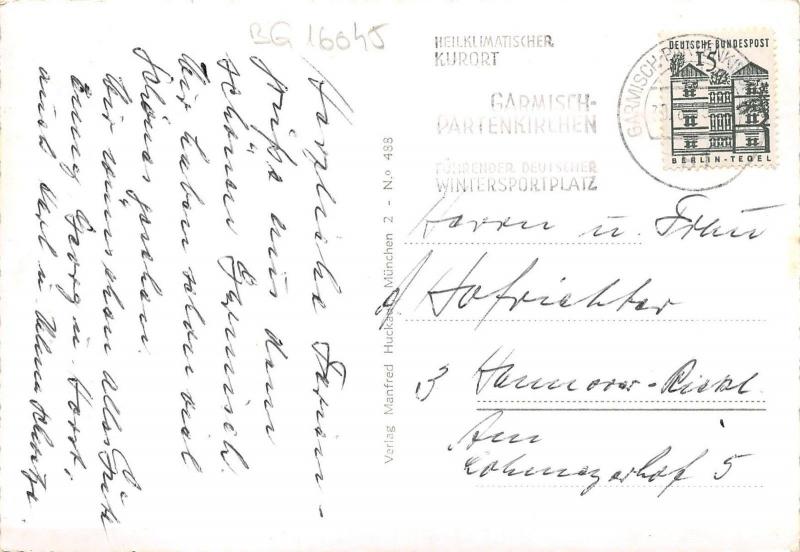 BG 16045
HEILKLIMATISCHER
KURORT
GARMISCH-
PARTENKIRCHEN
FÜHRENDER DEUTSCHER
WINTERSPORTPLATZ
GARMISCH-PARTENKI
DEUTSCHE BUNDESPOST
15
BERLIN-TEGEL
Herzliche Ferien-
Grüße aus dem
schönen Garmisch.
Wir haben schon viel
Schönes gesehen.
Wir wünschen alles Gute
Georg u. Horst,
auch Karl u.
Verlag Manfred Huckauf, München 2 - N.º 488
Herrn u. Frau
Hofrichter
3 Hannover-Rickl.
Am
Lohmeyerhof 5